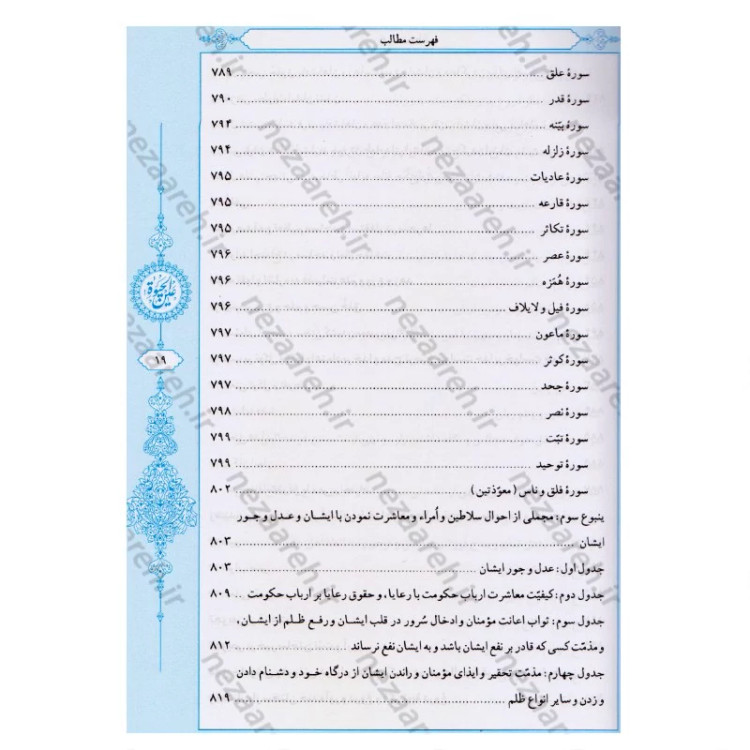 فهرست مطالب
سورهٔ علق ... ۷۸۹
سورهٔ قدر ... ۷۹۰
سورهٔ بیّنه ... ۷۹۴
سورهٔ زلزله ... ۷۹۴
سورهٔ عادیات ... ۷۹۵
سورهٔ قارعه ... ۷۹۵
سورهٔ تکاثر ... ۷۹۵
سورهٔ عصر ... ۷۹۶
سورهٔ هُمَزه ... ۷۹۶
سورهٔ فیل و لایلاف ... ۷۹۶
سورهٔ ماعون ... ۷۹۷
سورهٔ کوثر ... ۷۹۷
سورهٔ جحد ... ۷۹۷
سورهٔ نصر ... ۷۹۸
سورهٔ تبّت ... ۷۹۹
سورهٔ توحید ... ۷۹۹
سورهٔ فلق و ناس (معوّذتین) ... ۸۰۲
ینبوع سوم: مجملی از احوال سلاطین و اُمراء و معاشرت نمودن با ایشان و عدل و جور
ایشان ... ۸۰۳
جدول اول: عدل و جور ایشان ... ۸۰۳
جدول دوم: کیفیّت معاشرت ارباب حکومت با رعایا، و حقوق رعایا بر ارباب حکومت ۸۰۹
جدول سوم: ثواب اعانت مؤمنان و ادخال سُرور در قلب ایشان و رفع ظلم از ایشان،
و مذمّت کسی که قادر بر نفع ایشان باشد و به ایشان نفع نرساند ... ۸۱۲
جدول چهارم: مذمّت تحقیر و ایذای مؤمنان و راندن ایشان از درگاه خود و دشنام دادن
و زدن و سایر انواع ظلم ... ۸۱۹
عین الحیوة
۱۹
nezaareh.ir